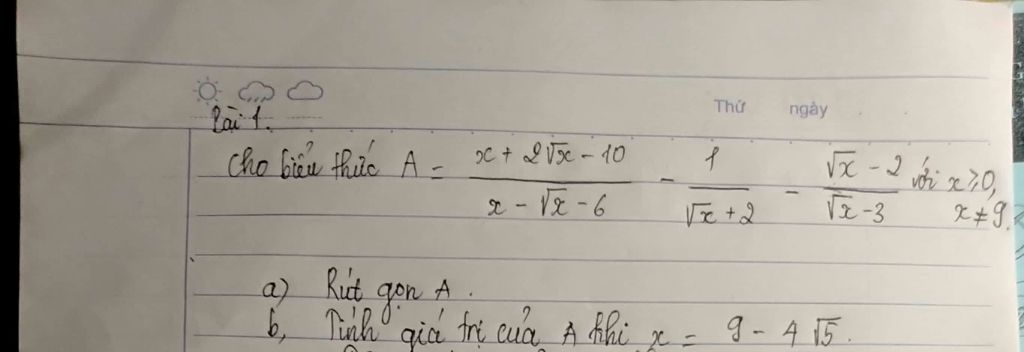 Thứ ngày
Bài 1.
Cho biểu thức A = \frac{x + 2\sqrt{x} - 10}{x - \sqrt{x} - 6} - \frac{1}{\sqrt{x} + 2} - \frac{\sqrt{x} - 2}{\sqrt{x} - 3} với x ⩾ 0, x ≠ 9.
a) Rút gọn A.
b, Tính giá trị của A khi x = 9 - 4√5.